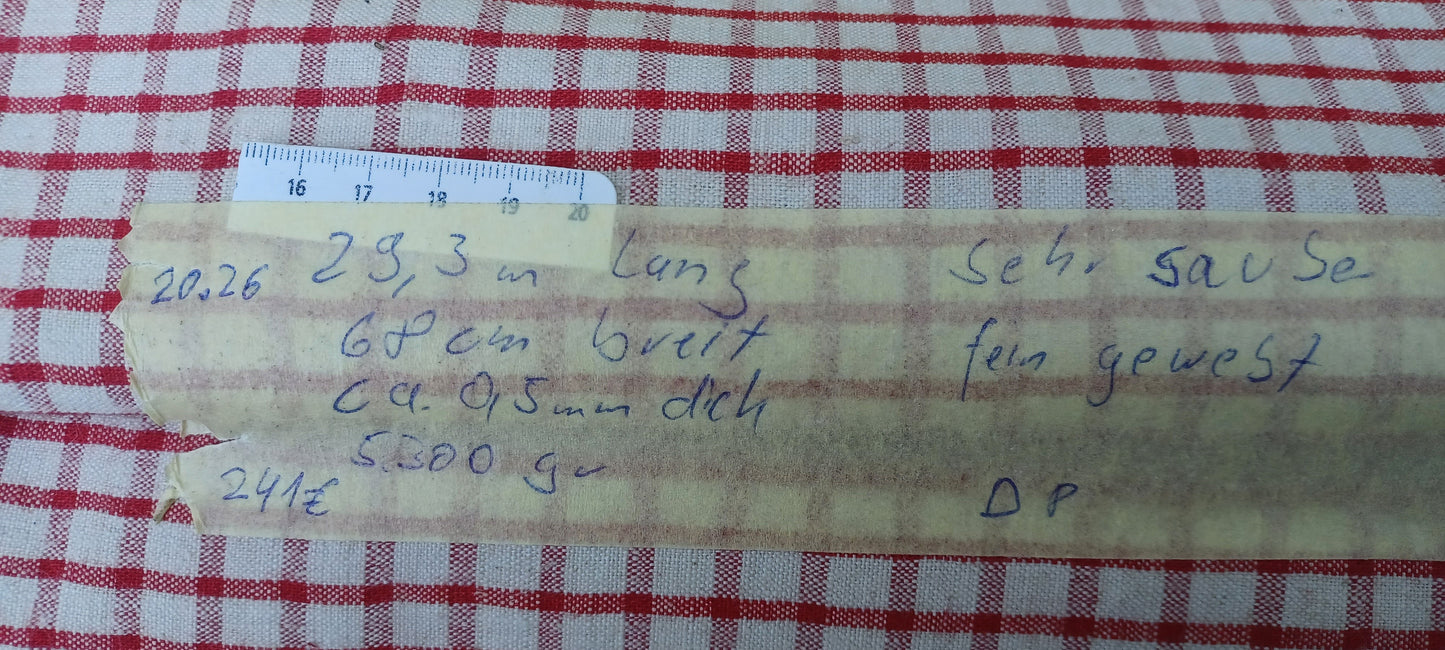 16 17 18 19 20
20.26 29,3 m lang sehr sauber
68 cm breit fein gewebt
ca. 0,5mm dick
5.300 gr
241€ DP